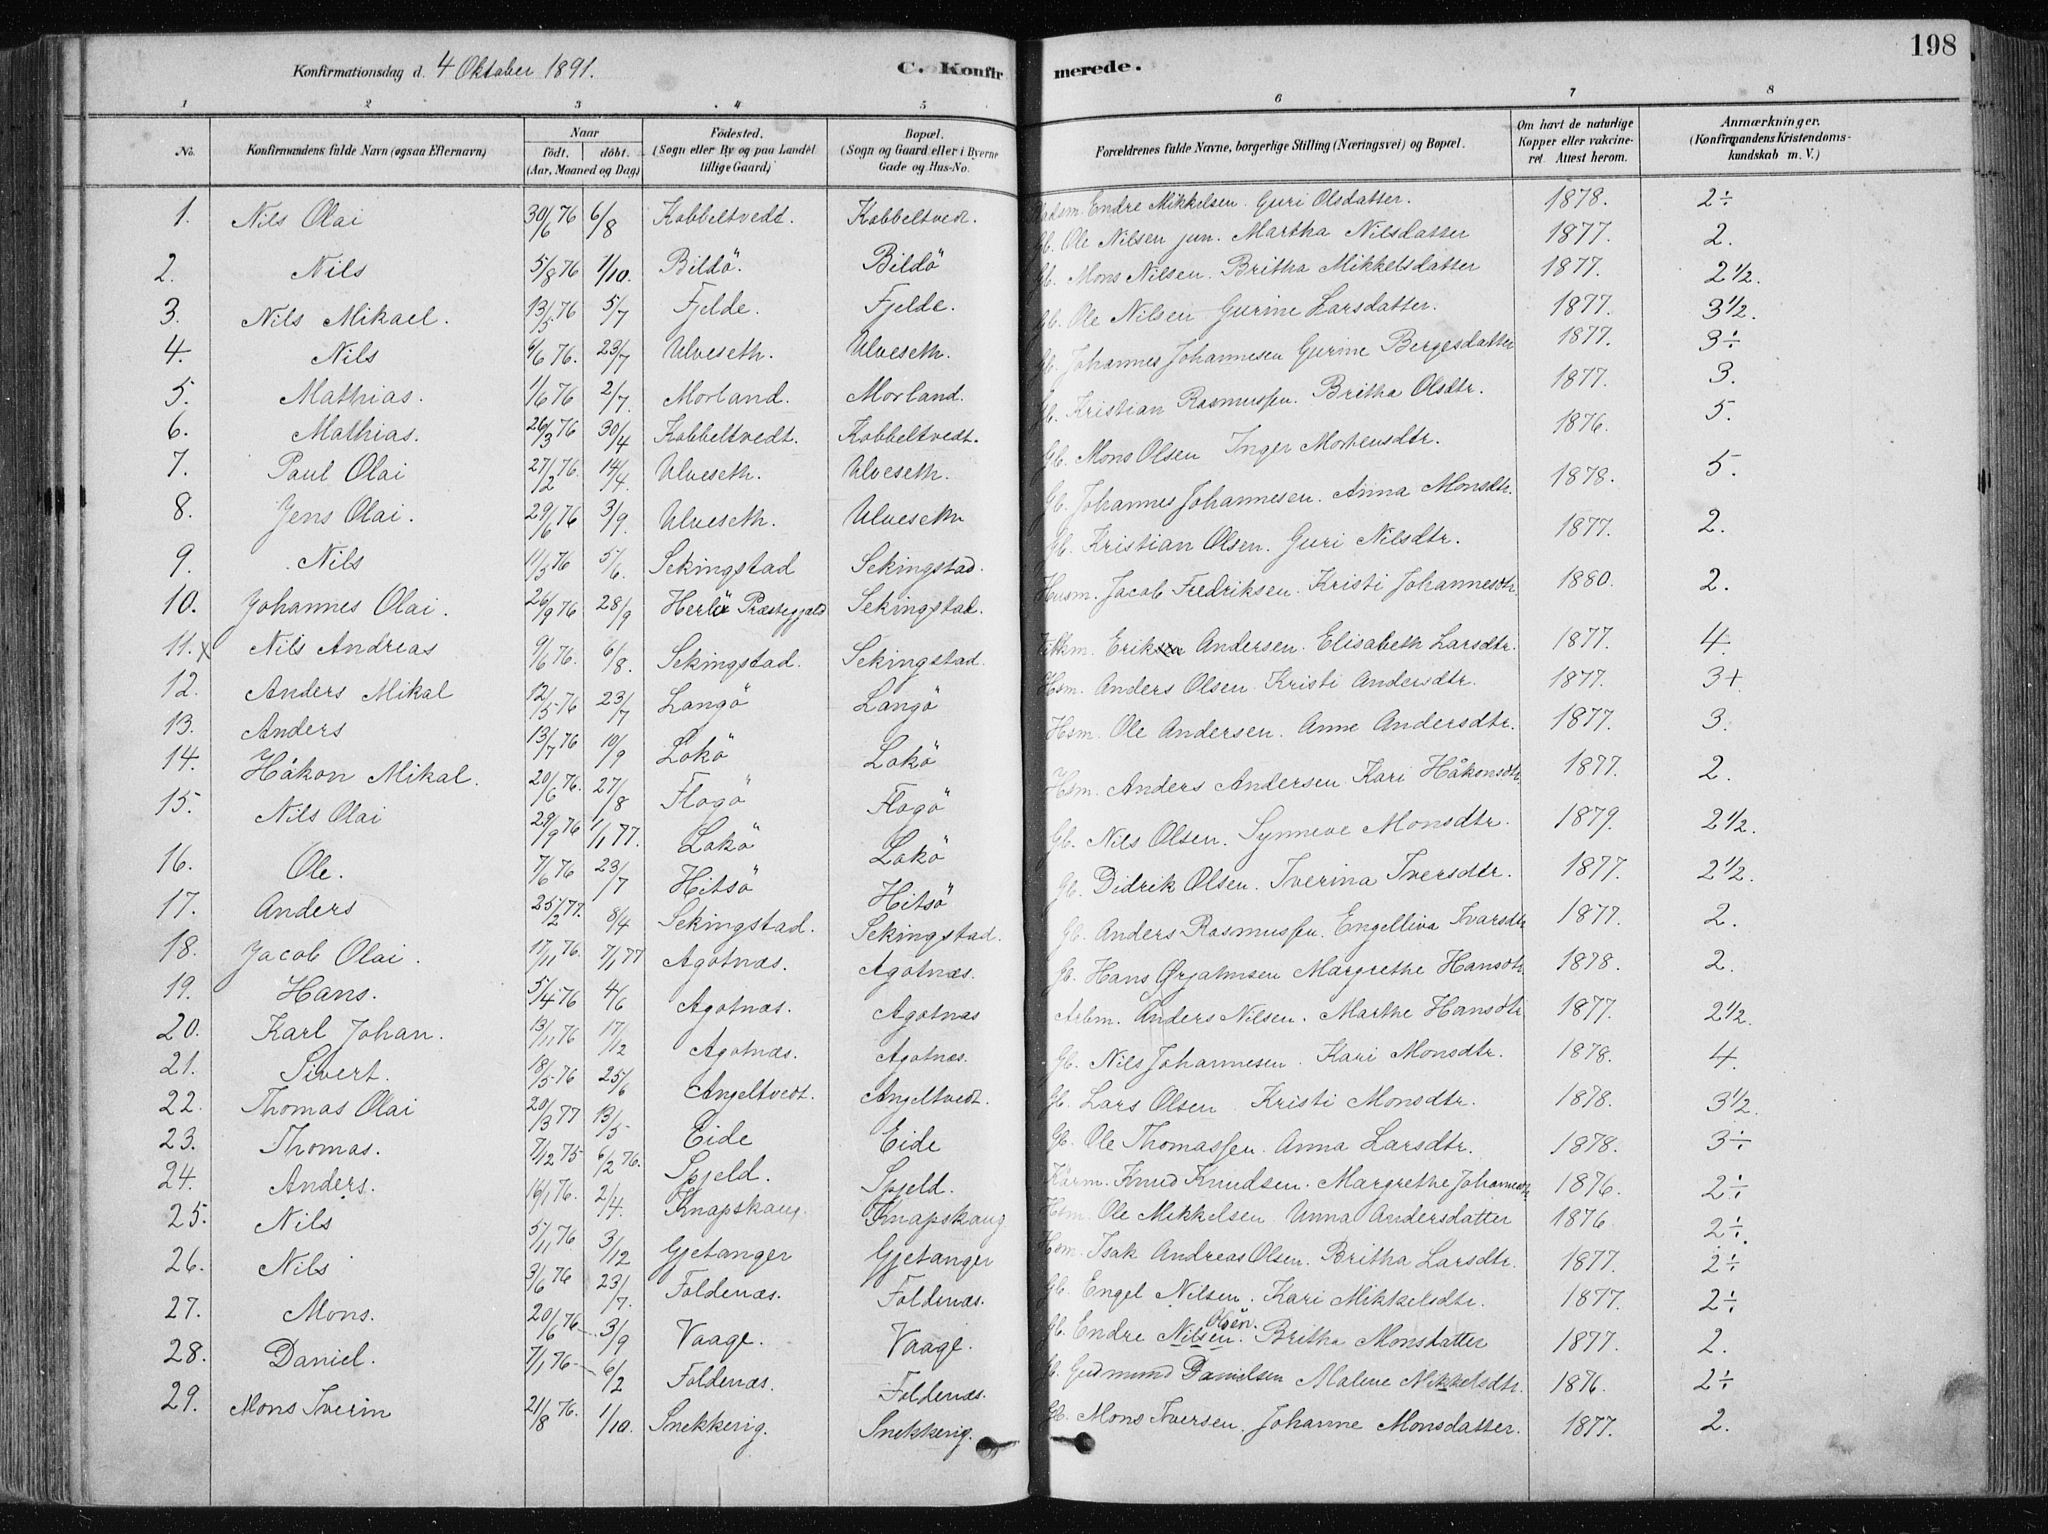 198
Konfirmationsdag d. 4 Oktober 1891.
C. Konfirmerede.
1 2 3 4 5 6 7 8
No.
Konfirmandens fulde Navn (ogsaa Efternavn)
Naar
født. døbt.
(Aar, Maaned og Dag)
Födested.
(Sogn eller By og paa Landet tillige Gaard)
Bopæl.
(Sogn og Gaard eller i Byerne Gade og Hus-No.
Forældrenes fulde Navne, borgerlige Stilling (Næringsvei) og Bopæl.
Om havt de naturlige Kopper eller vakcineret. Attest herom.
Anmærkninger.
(Konfirmandens Kristendomskundskab m. V.)
1. Nils Olai 30/6 76 6/8 Kobbeltvedt. Kobbeltvedt. Endre Mikkelsen. Guri Olsdatter. 1878. 2÷
2. Nils 5/8 76 1/10. Bildö. Bildö Gb. Ole Nilsen jun. Martha Nilsdatter 1877. 2.
3. Nils Mikael. 13/5 76 5/7 Fjelde. Fjelde. Gb. Mons Nilsen. Britha Mikkelsdatter 1877. 2 1/2.
4. Nils 9/6 76. 23/7 Ulveseth. Ulveseth. Gb. Ole Nilsen Gurine Larsdatter. 1877. 3 1/2.
5. Mathias. 1/6 76 2/7 Morland. Morland. Gb. Johannes Johannesen Gurine Bergesdatter 1877. 3÷
6. Mathias. 26/3 76 30/4 Kobbeltvedt. Kobbeltvedt. Gb. Kristian Rasmussen. Britha Olsdtr. 1877. 3.
7. Paul Olai 27/2 76. 14/4 Ulveseth. Ulveseth. Gb. Mons Olsen Inger Mortensdtr. 1876. 5.
8. Jens Olai. 29/6 76 3/9. Ulveseth. Ulveseth Gb. Johannes Johannesen. Anna Monsdtr. 1878. 5.
9. Nils 11/5 76 5/6. Sekingstad Sekingstad. Gb. Kristian Olsen. Guri Nilsdtr. 1877. 2.
10. Johannes Olai. 26/9 76 28/9 Herlö Præstegjeld Sekingstad. Husm. Jacob Fredriksen. Kristi Johannesdtr 1880. 2.
11. x Nils Andreas 9/6 76. 6/8. Sekingstad. Sekingstad. Erik Andersen. Elisabeth Larsdtr. 1877. 4.
12. Anders Mikal 12/5 76 23/7 Langö Langö Hsm. Anders Olsen. Kristi Andersdtr. 1877. 3+.
13. Anders 13/7 76 10/9 Lokö Lokö Hsm. Ole Andersen. Anne Andersdtr. 1877. 3.
14. Håkon Mikal. 20/6 76. 27/8 Flogö Flogö Hsm. Anders Andersen. Kari Håkonsdtr. 1877. 2.
15. Nils Olai 29/9 76 1/1 77. Lokö Lokö Gb. Nils Olsen. Synneve Monsdtr. 1879. 2 1/2.
16. Ole. 7/6 76 23/7 Hitsö Hitsö Gb. Didrik Olsen. Iverina Iversdtr. 1877. 2 1/2.
17. Anders 25/2 77. 8/4 Sekingstad. Sekingstad. Gb. Anders Rasmussen. Engelliva Ivarsdtr 1877. 2.
18. Jacob Olai. 17/11 76. 7/1 77 Agotnæs. Agotnæs. Gb. Hans Ørjansen Margrethe Hansdtr 1878. 2.
19. Hans. 5/4 76 4/6 Agotnæs. Agotnæs Arbm. Anders Nilsen. Marthe Hansdtr 1877. 2 1/2.
20. Karl Johan. 13/11 76 17/12 Agotnæs. Agotnæs. Gb. Nils Johannesen. Kari Monsdtr. 1878. 4
21. Sivert. 18/5 76 25/6 Angeltvedt. Angeltvedt. Gb. Lars Olsen Kristi Monsdtr. 1878. 3 1/2.
22. Thomas Olai 20/3 77 13/5 Eide Eide Gb. Ole Thomassen. Anna Larsdtr. 1878. 3÷
23. Thomas. 7/12 75 6/2 76. Spjeld. Spjeld. Kårm. Knud Knudsen. Margrethe Johannesdtr 1876. 2÷
24. Anders. 16/1 76. 2/4. Knapskaug. Knapskaug Hsm. Ole Mikkelsen. Anna Andersdatter 1876. 2÷.
25. Nils 5/11 76 3/12 Gjetanger Gjetanger Hsm. Isak Andreas Olsen. Britha Larsdtr. 1877. 2÷
26. Nils 3/6 76 23/7. Foldenæs. Foldenæs. Gb. Engel Nilsen. Kari Mikkelsdtr. 1877. 2÷.
27. Mons. 20/6 76 3/9 Vaage. Vaage. Gb. Endre Nilsen. Olsen. Britha Monsdatter 1877. 2.
28. Daniel. 7/1 76 6/2 Foldenæs. Foldenæs. Gb. Gudmund Danielsen Malene Mikkelsdtr. 1876. 2÷
29. Mons Iverin 21/8 76. 1/10. Snekkerig. Snekkerig. Gb. Mons Iversen. Johanne Monsdatter. 1877. 2.